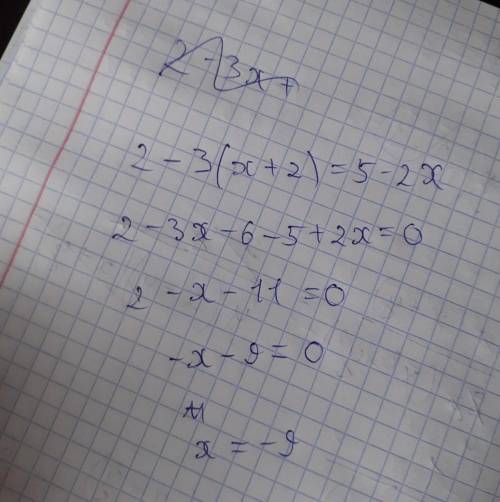 2 - 3x +
2 - 3(x + 2) = 5 - 2x
2 - 3x - 6 - 5 + 2x = 0
2 - x - 11 = 0
-x - 9 = 0
x = -9